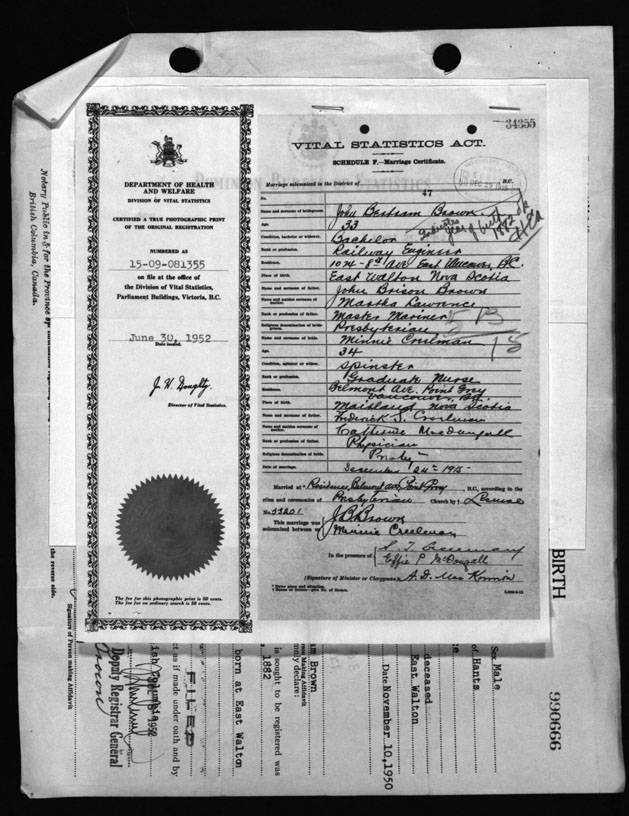 DEPARTMENT OF HEALTH
AND WELFARE
DIVISION OF VITAL STATISTICS
CERTIFIED A TRUE PHOTOGRAPHIC PRINT
OF THE ORIGINAL REGISTRATION
NUMBERED AS
15-09-081355
on file at the office of
the Division of Vital Statistics,
Parliament Buildings, Victoria, B.C.
June 30, 1952
Date issued.
Director of Vital Statistics.
The fee for this photographic print is 50 cents.
The fee for an ordinary search is 50 cents.
34355
VITAL STATISTICS ACT.
SCHEDULE F.—Marriage Certificate.
DOMINION BUREAU OF STATISTICS
Marriage solemnized in the District of B.C.
No. 47
Name and surname of bridegroom. John Bertram Brown
year of birth 1882
Age. 33
Condition, bachelor or widower. Bachelor
Rank or profession. Railway Engineer
Residence. 8th Ave East Vancouver, B.C.
Place of birth. East Walton Nova Scotia
Name and surname of father. John Brison Brown
Name and maiden surname of mother. Martha Lawrence
Rank or profession of father. Master Mariner
Religious denomination of bridegroom. Presbyterian
Name and surname of bride. Minnie Creelman
Age. 34
Condition, spinster or widow. Spinster
Rank or profession. Graduate Nurse
Residence. Belmont Ave. Point Grey
Vancouver, B.C.
Place of birth. Maitland Nova Scotia
Name and surname of father. Frederick S. Creelman
Name and maiden surname of mother. Catherine MacDougall
Rank or profession of father. Physician
Religious denomination of bride. Presby
Date of marriage. December 24th 1915
Married at Residence Belmont Ave Point Grey B.C., according to the
rites and ceremonies of Presbyterian Church by License
No. 53201
This marriage was solemnized between us J B Brown
Minnie Creelman
In the presence of
Effie P McDougall
(Signature of Minister or Clergyman)
Notary Public in & for the Province of
British Columbia, Canada.
the reverse side.
Signature of Person making Affidavit
Deputy Registrar General
FILED
1952
act as if made under oath and by
born at East Walton
1882
is sought to be registered was
declare:
Brown
Making Affidavit
Date November 10, 1950
East Walton
deceased
of Hants
Sex Male
BIRTH
990666